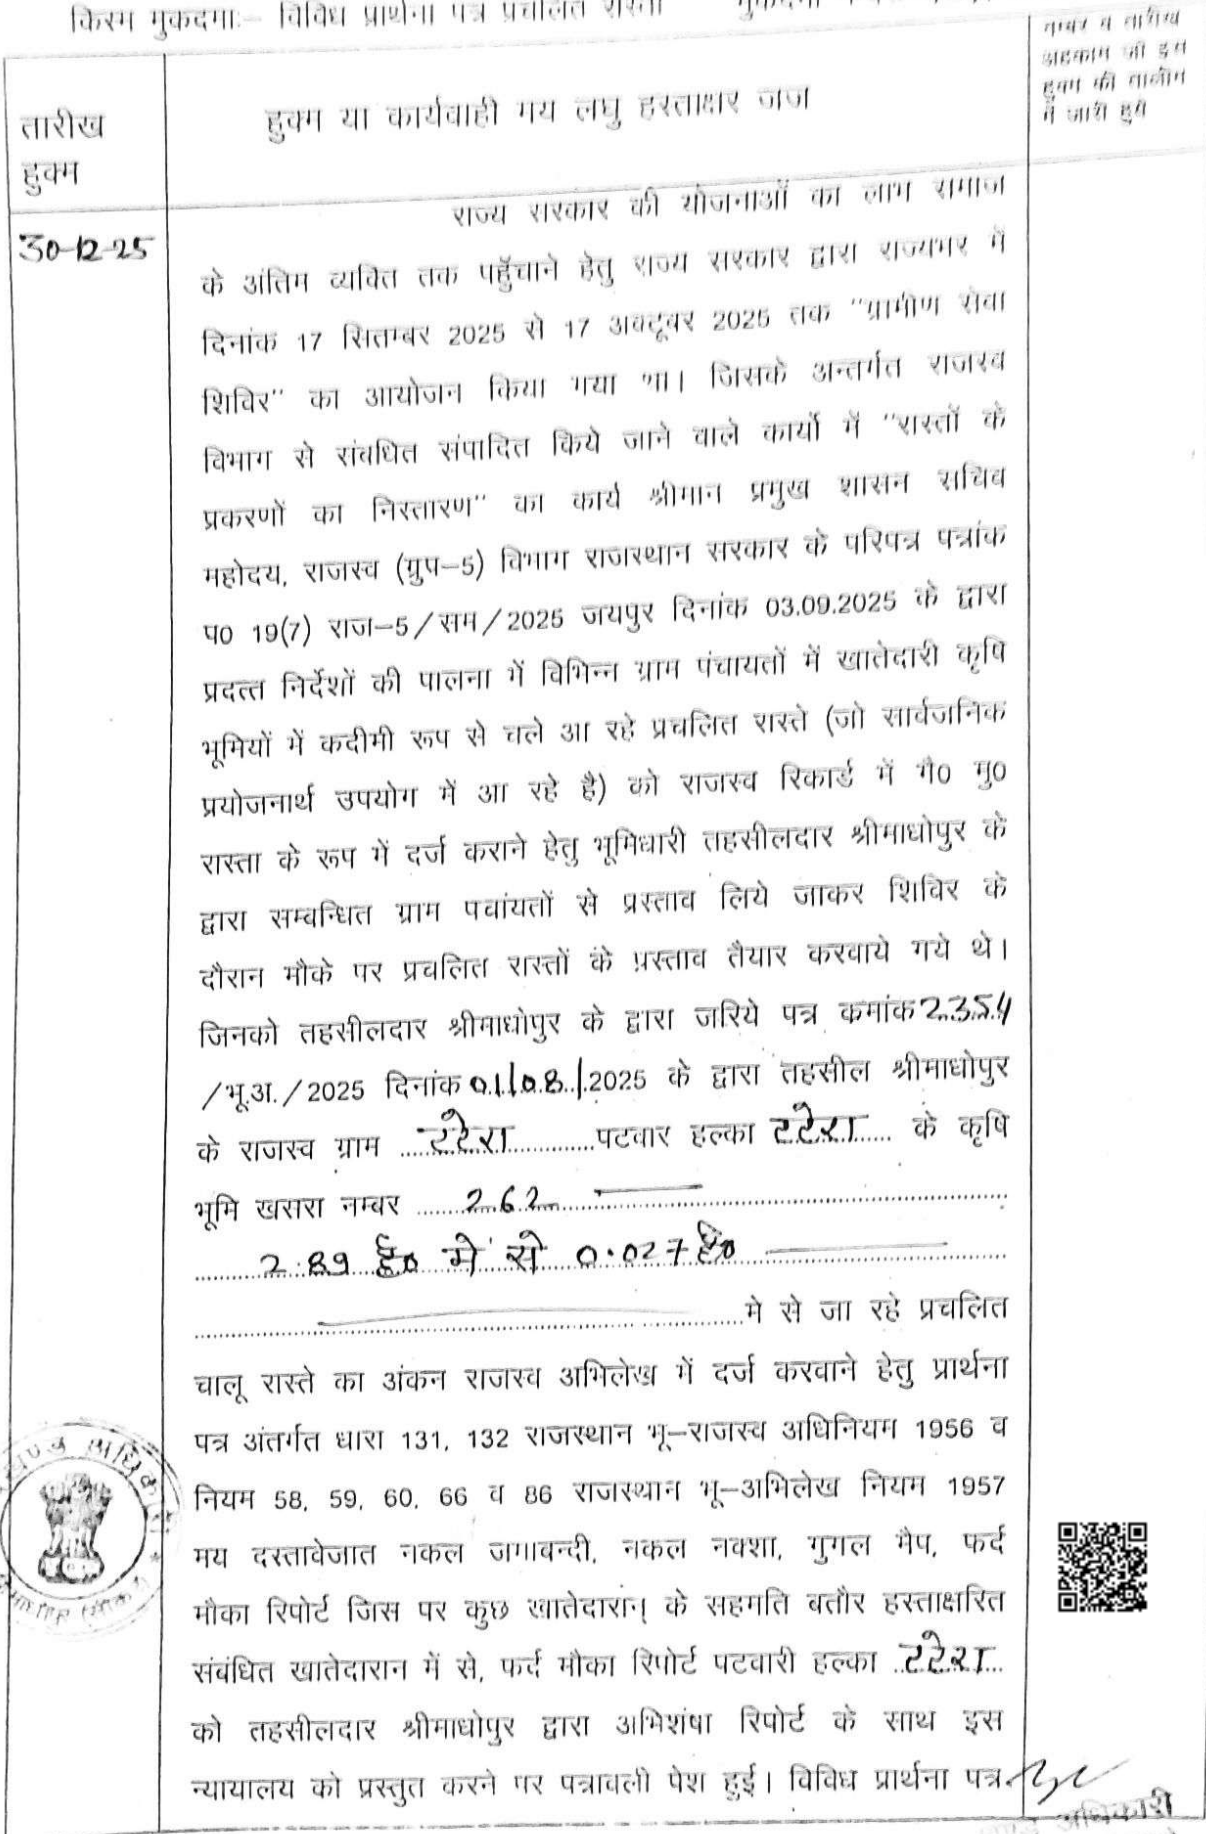 किस्म मुकदमाः– विविध प्रार्थना पत्र प्रचलित रास्ता
नम्बर व तारीख
अहकाम जो इस
हुक्म की तालीम
में जारी हुये
तारीख
हुक्म
हुक्म या कार्यवाही मय लघु हस्ताक्षर जज
30-12-25
राज्य सरकार की योजनाओं का लाभ समाज
के अंतिम व्यक्ति तक पहुँचाने हेतु राज्य सरकार द्वारा राज्यभर में
दिनांक 17 सितम्बर 2025 से 17 अक्टूबर 2025 तक "ग्रामीण सेवा
शिविर" का आयोजन किया गया था। जिसके अन्तर्गत राजस्व
विभाग से संबधित संपादित किये जाने वाले कार्यो में "रास्तों के
प्रकरणों का निस्तारण" का कार्य श्रीमान प्रमुख शासन सचिव
महोदय, राजस्व (ग्रुप–5) विभाग राजस्थान सरकार के परिपत्र पत्रांक
प0 19(7) राज–5/सम/2025 जयपुर दिनांक 03.09.2025 के द्वारा
प्रदत्त निर्देशों की पालना में विभिन्न ग्राम पंचायतों में खातेदारी कृषि
भूमियों में कदीमी रूप से चले आ रहे प्रचलित रास्ते (जो सार्वजनिक
प्रयोजनार्थ उपयोग में आ रहे है) को राजस्व रिकार्ड में गै0 मु0
रास्ता के रूप में दर्ज कराने हेतु भूमिधारी तहसीलदार श्रीमाधोपुर के
द्वारा सम्बन्धित ग्राम पचांयतों से प्रस्ताव लिये जाकर शिविर के
दौरान मौके पर प्रचलित रास्तों के प्रस्ताव तैयार करवाये गये थे।
जिनको तहसीलदार श्रीमाधोपुर के द्वारा जरिये पत्र कमांक 2354
/भू.अ./2025 दिनांक 01/08/2025 के द्वारा तहसील श्रीमाधोपुर
के राजस्व ग्राम टटेरा पटवार हल्का टटेरा के कृषि
भूमि खसरा नम्बर 262
2.89 है0 मे से 0.027 है0
मे से जा रहे प्रचलित
चालू रास्ते का अंकन राजस्व अभिलेख में दर्ज करवाने हेतु प्रार्थना
पत्र अंतर्गत धारा 131, 132 राजस्थान भू–राजस्व अधिनियम 1956 व
नियम 58, 59, 60, 66 व 86 राजस्थान भू–अभिलेख नियम 1957
मय दस्तावेजात नकल जमाबन्दी, नकल नक्शा, गुगल मैप, फर्द
मौका रिपोर्ट जिस पर कुछ खातेदारान के सहमति बतौर हस्ताक्षरित
संबंधित खातेदारान में से, फर्द मौका रिपोर्ट पटवारी हल्का टटेरा
को तहसीलदार श्रीमाधोपुर द्वारा अभिशंषा रिपोर्ट के साथ इस
न्यायालय को प्रस्तुत करने पर पत्रावली पेश हुई। विविध प्रार्थना पत्र
अधिकारी